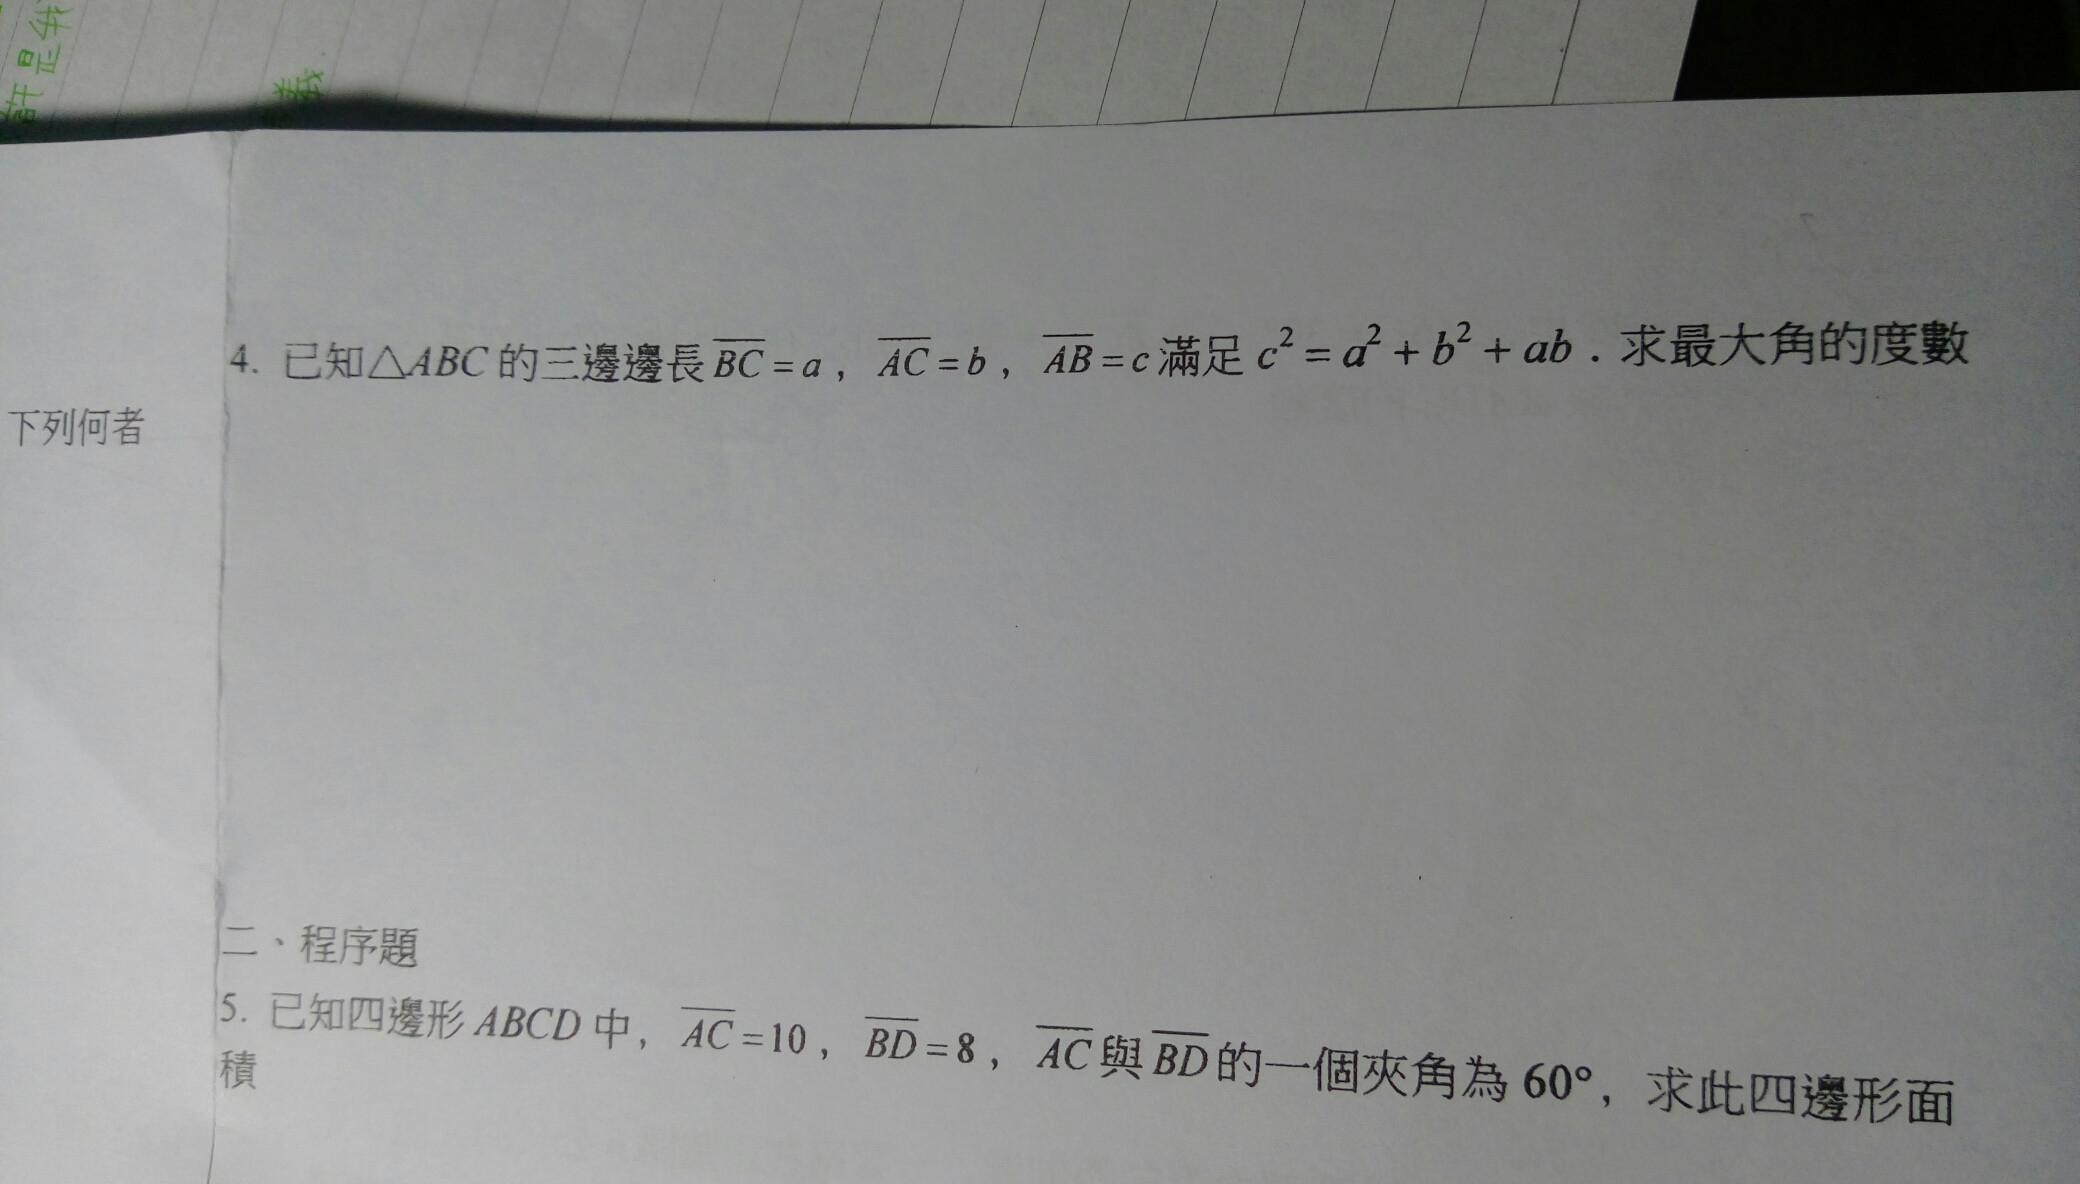 義
下列何者
4. 已知△ABC 的三邊邊長 BC = a , AC = b , AB = c 滿足 c² = a² + b² + ab . 求最大角的度數
二、程序題
5. 已知四邊形 ABCD 中, AC = 10 , BD = 8 , AC 與 BD 的一個夾角為 60°, 求此四邊形面
積